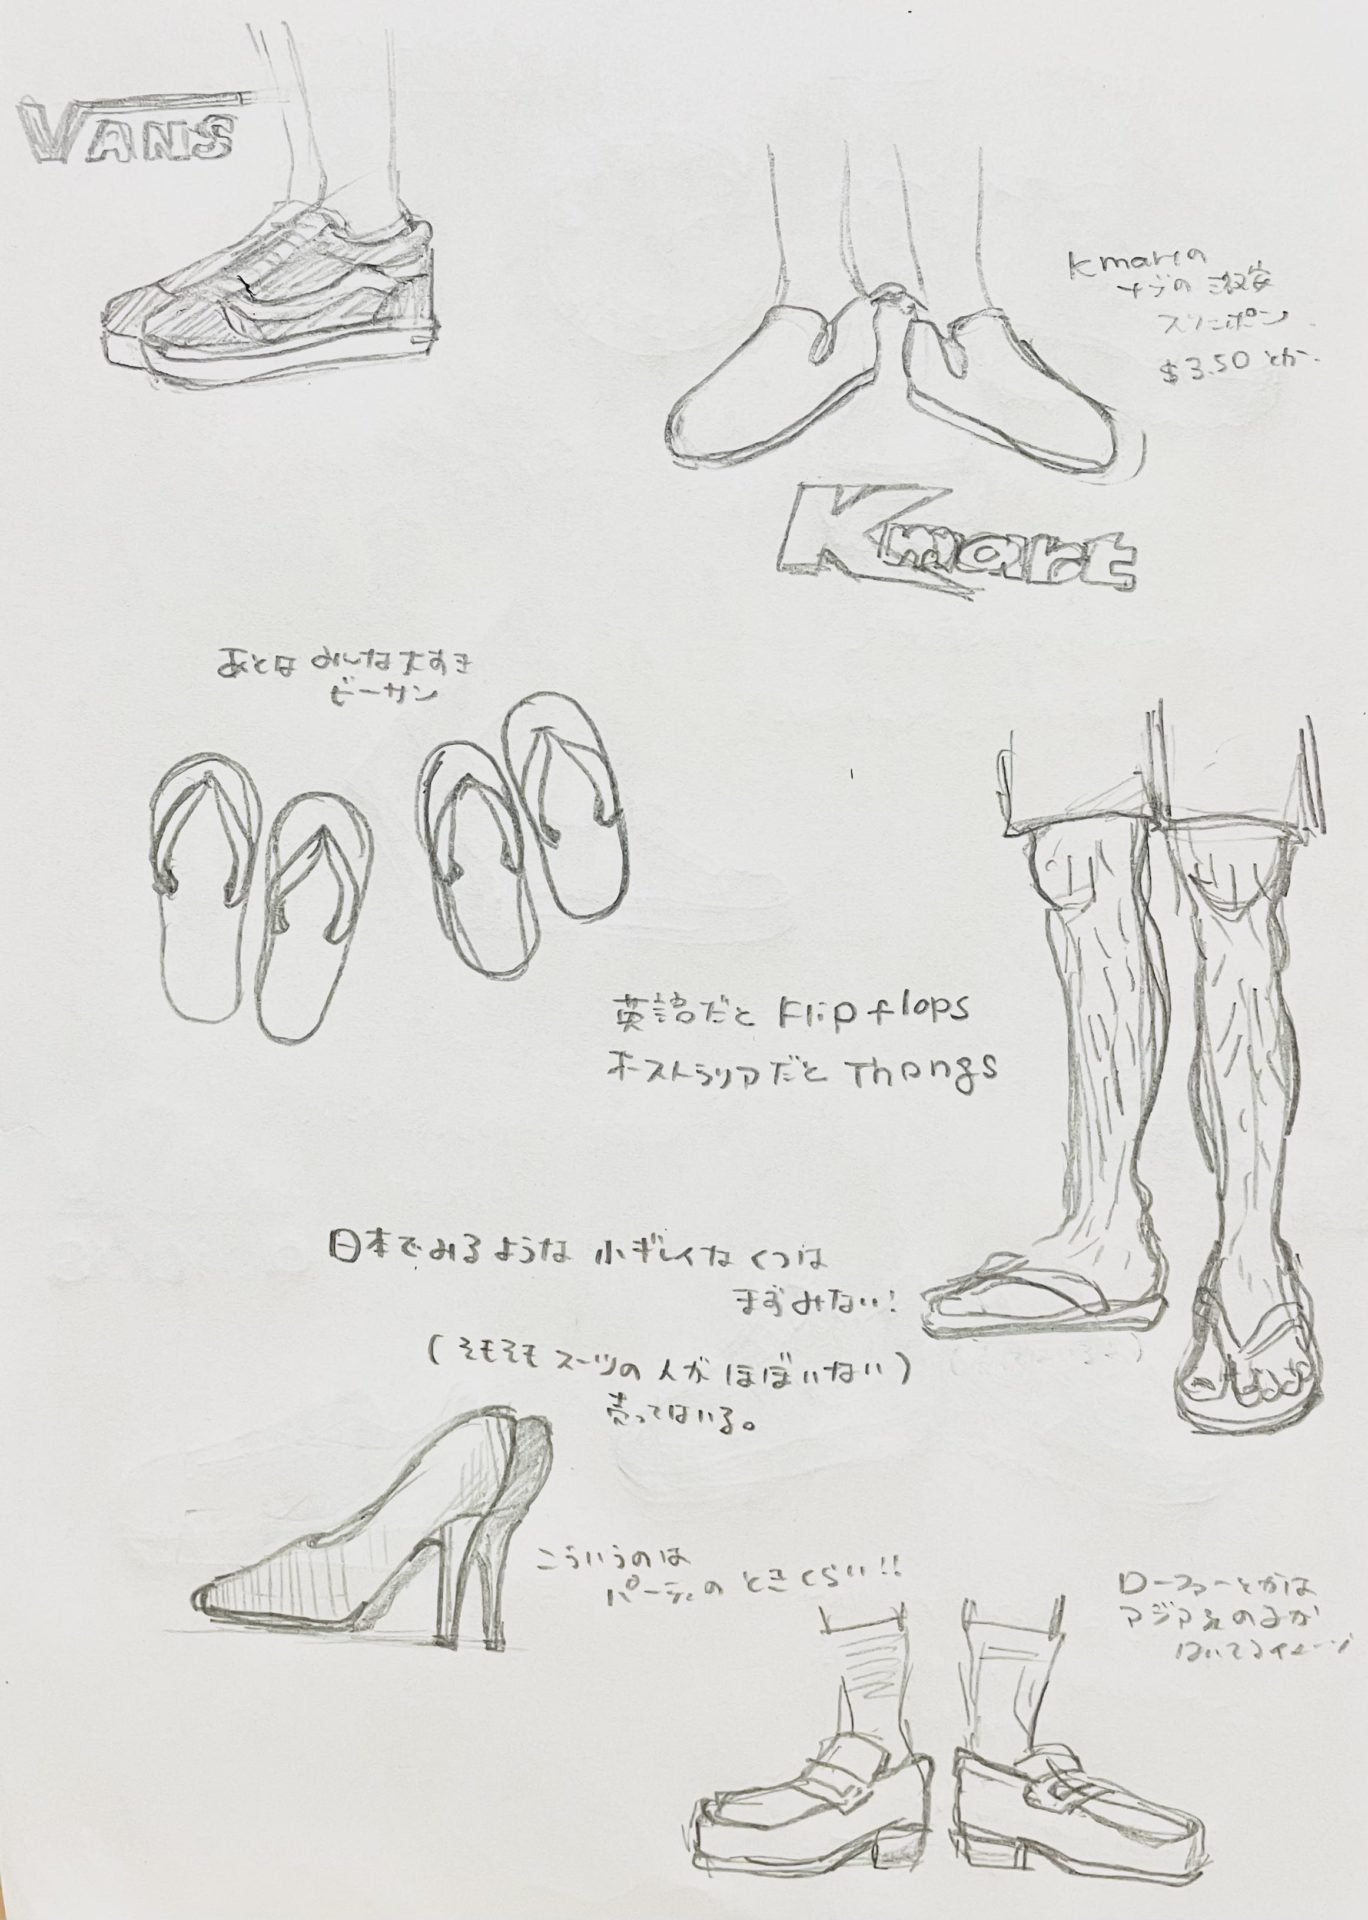 VANS
Kmartの
ナゾの激安
スリッポン
$3.50とか
Kmart
あとは みんな大すき
ビーサン
英語だと Flip flops
オーストラリアだと Thongs
日本でみるような 小ギレイなくつは
まずみない!
(そもそも スーツの人が ほぼいない)
売ってはいる。
こういうのは
パーティの ときくらい!!
ローファーとかは
アジア系の子が
はいてるイメージ